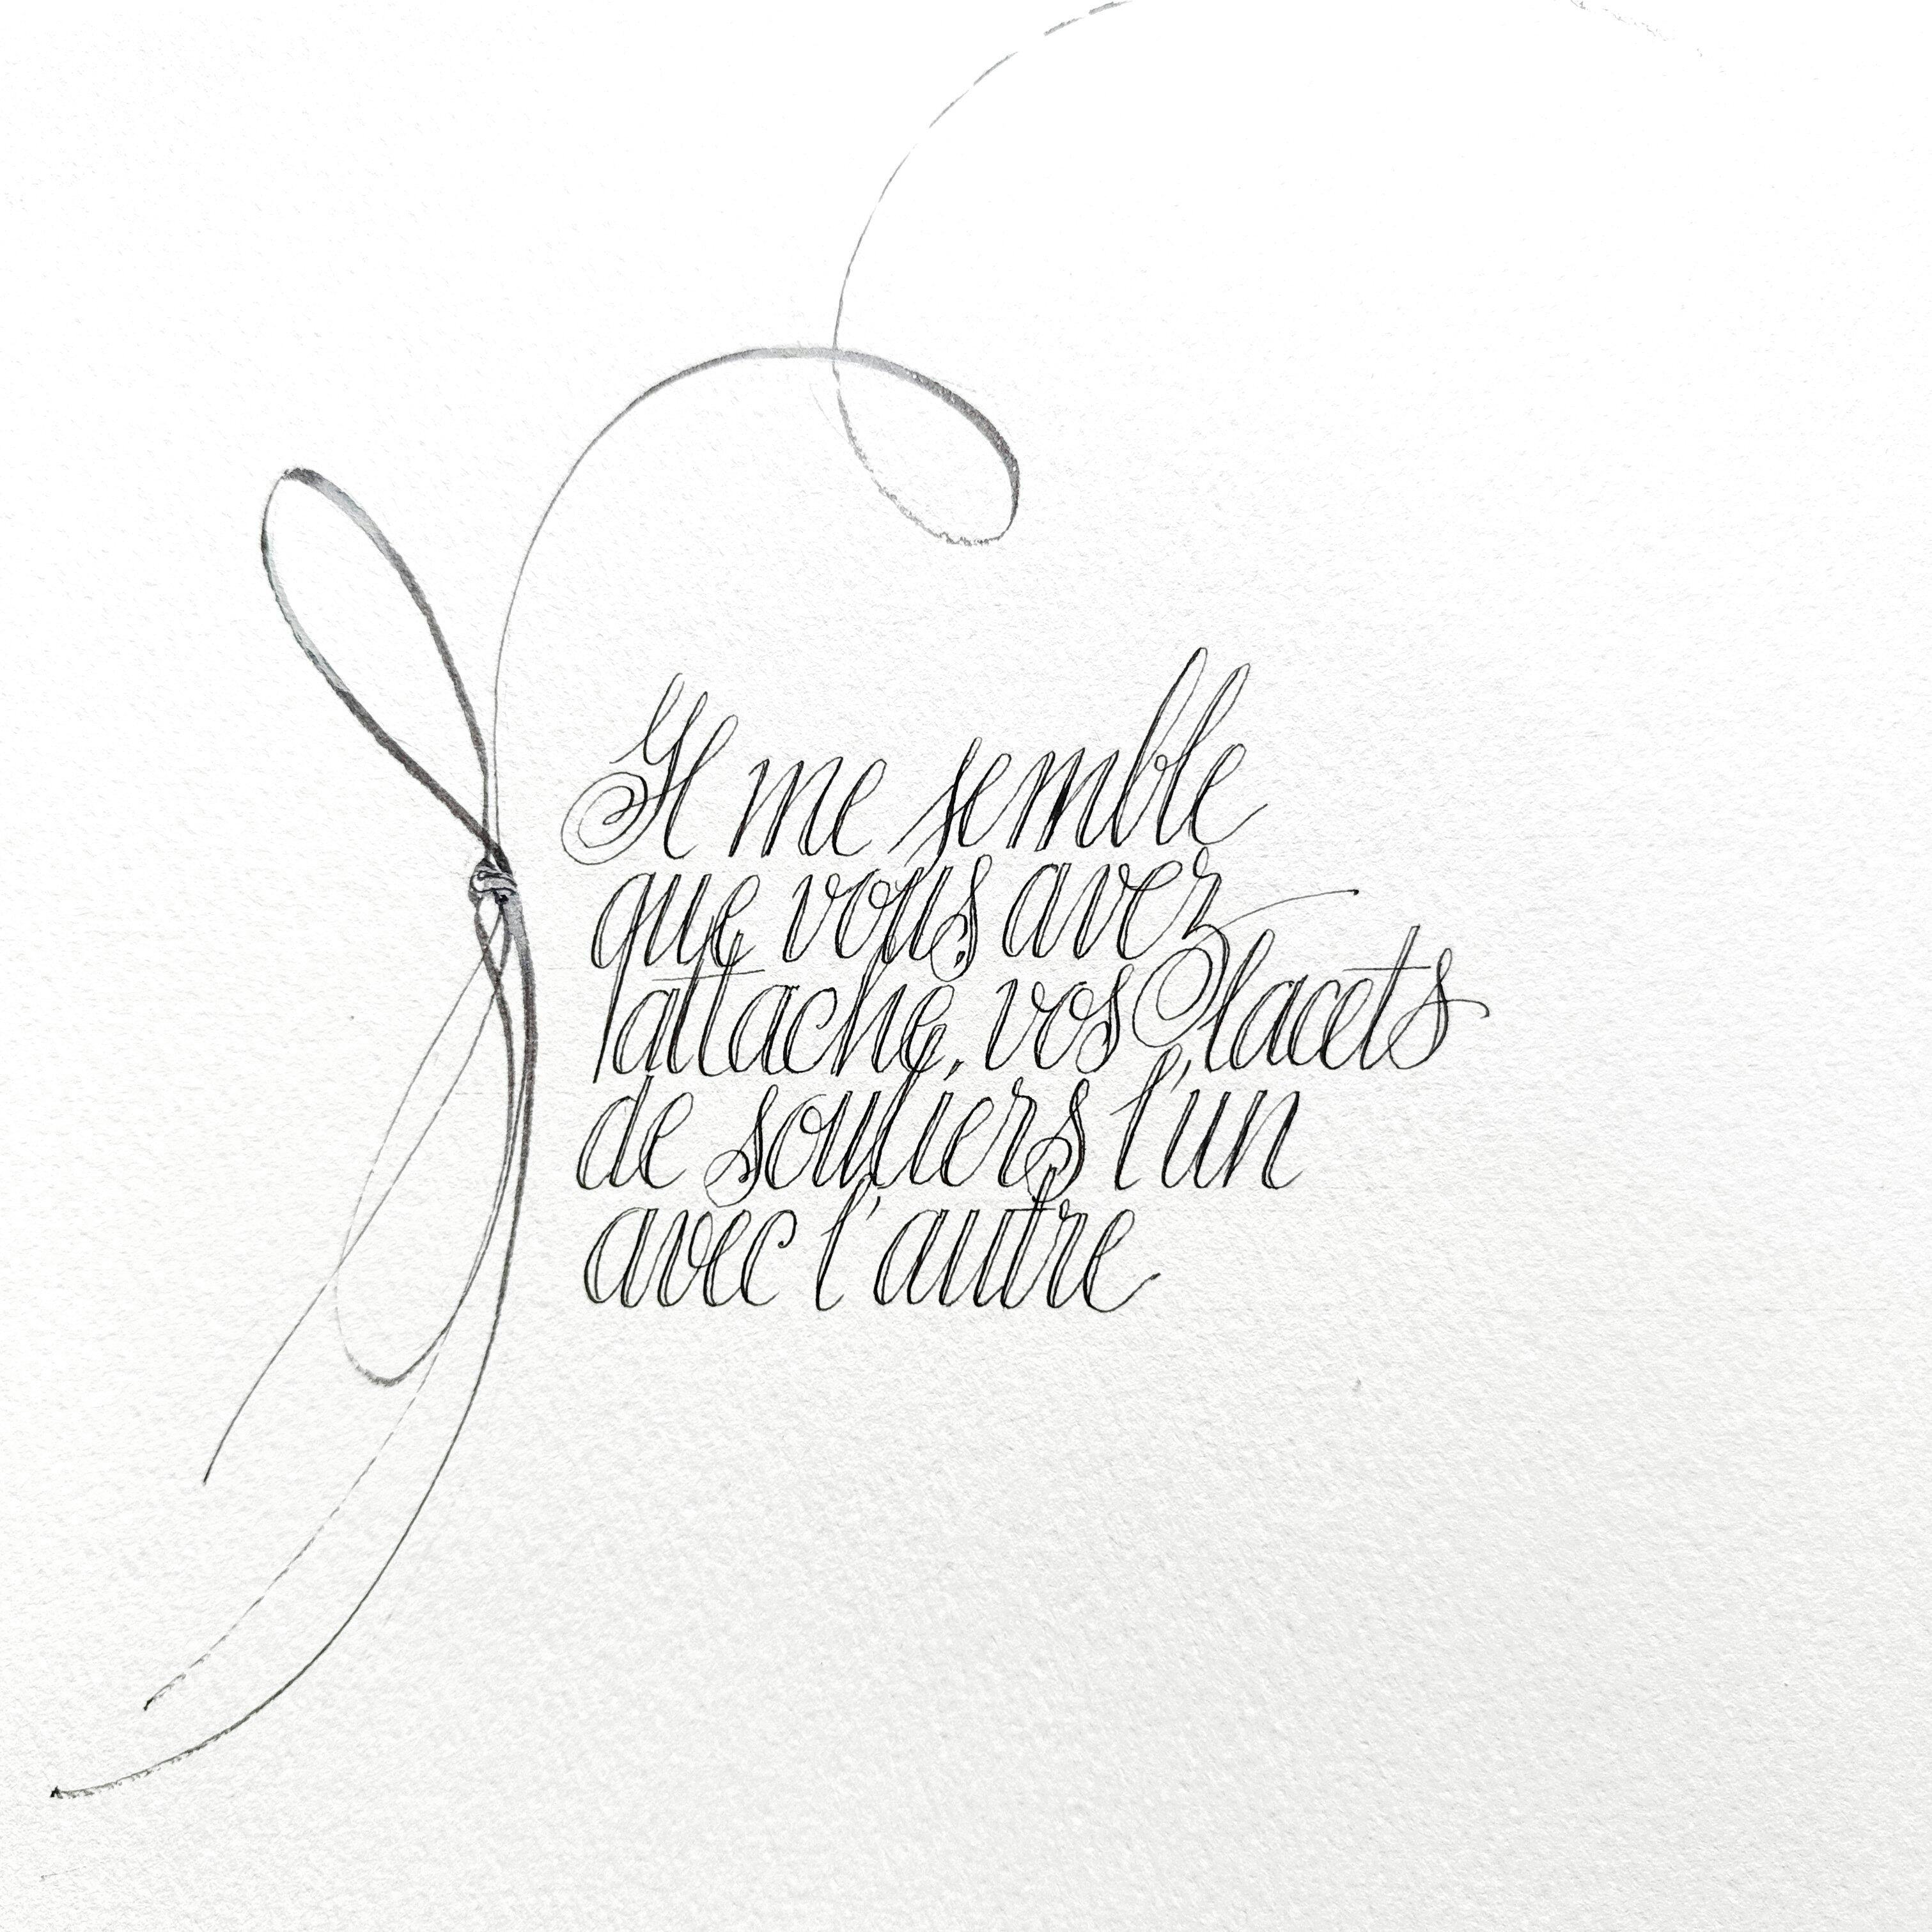 Il me semble
que vous avez
attaché, vos lacets
de souliers l'un
avec l'autre